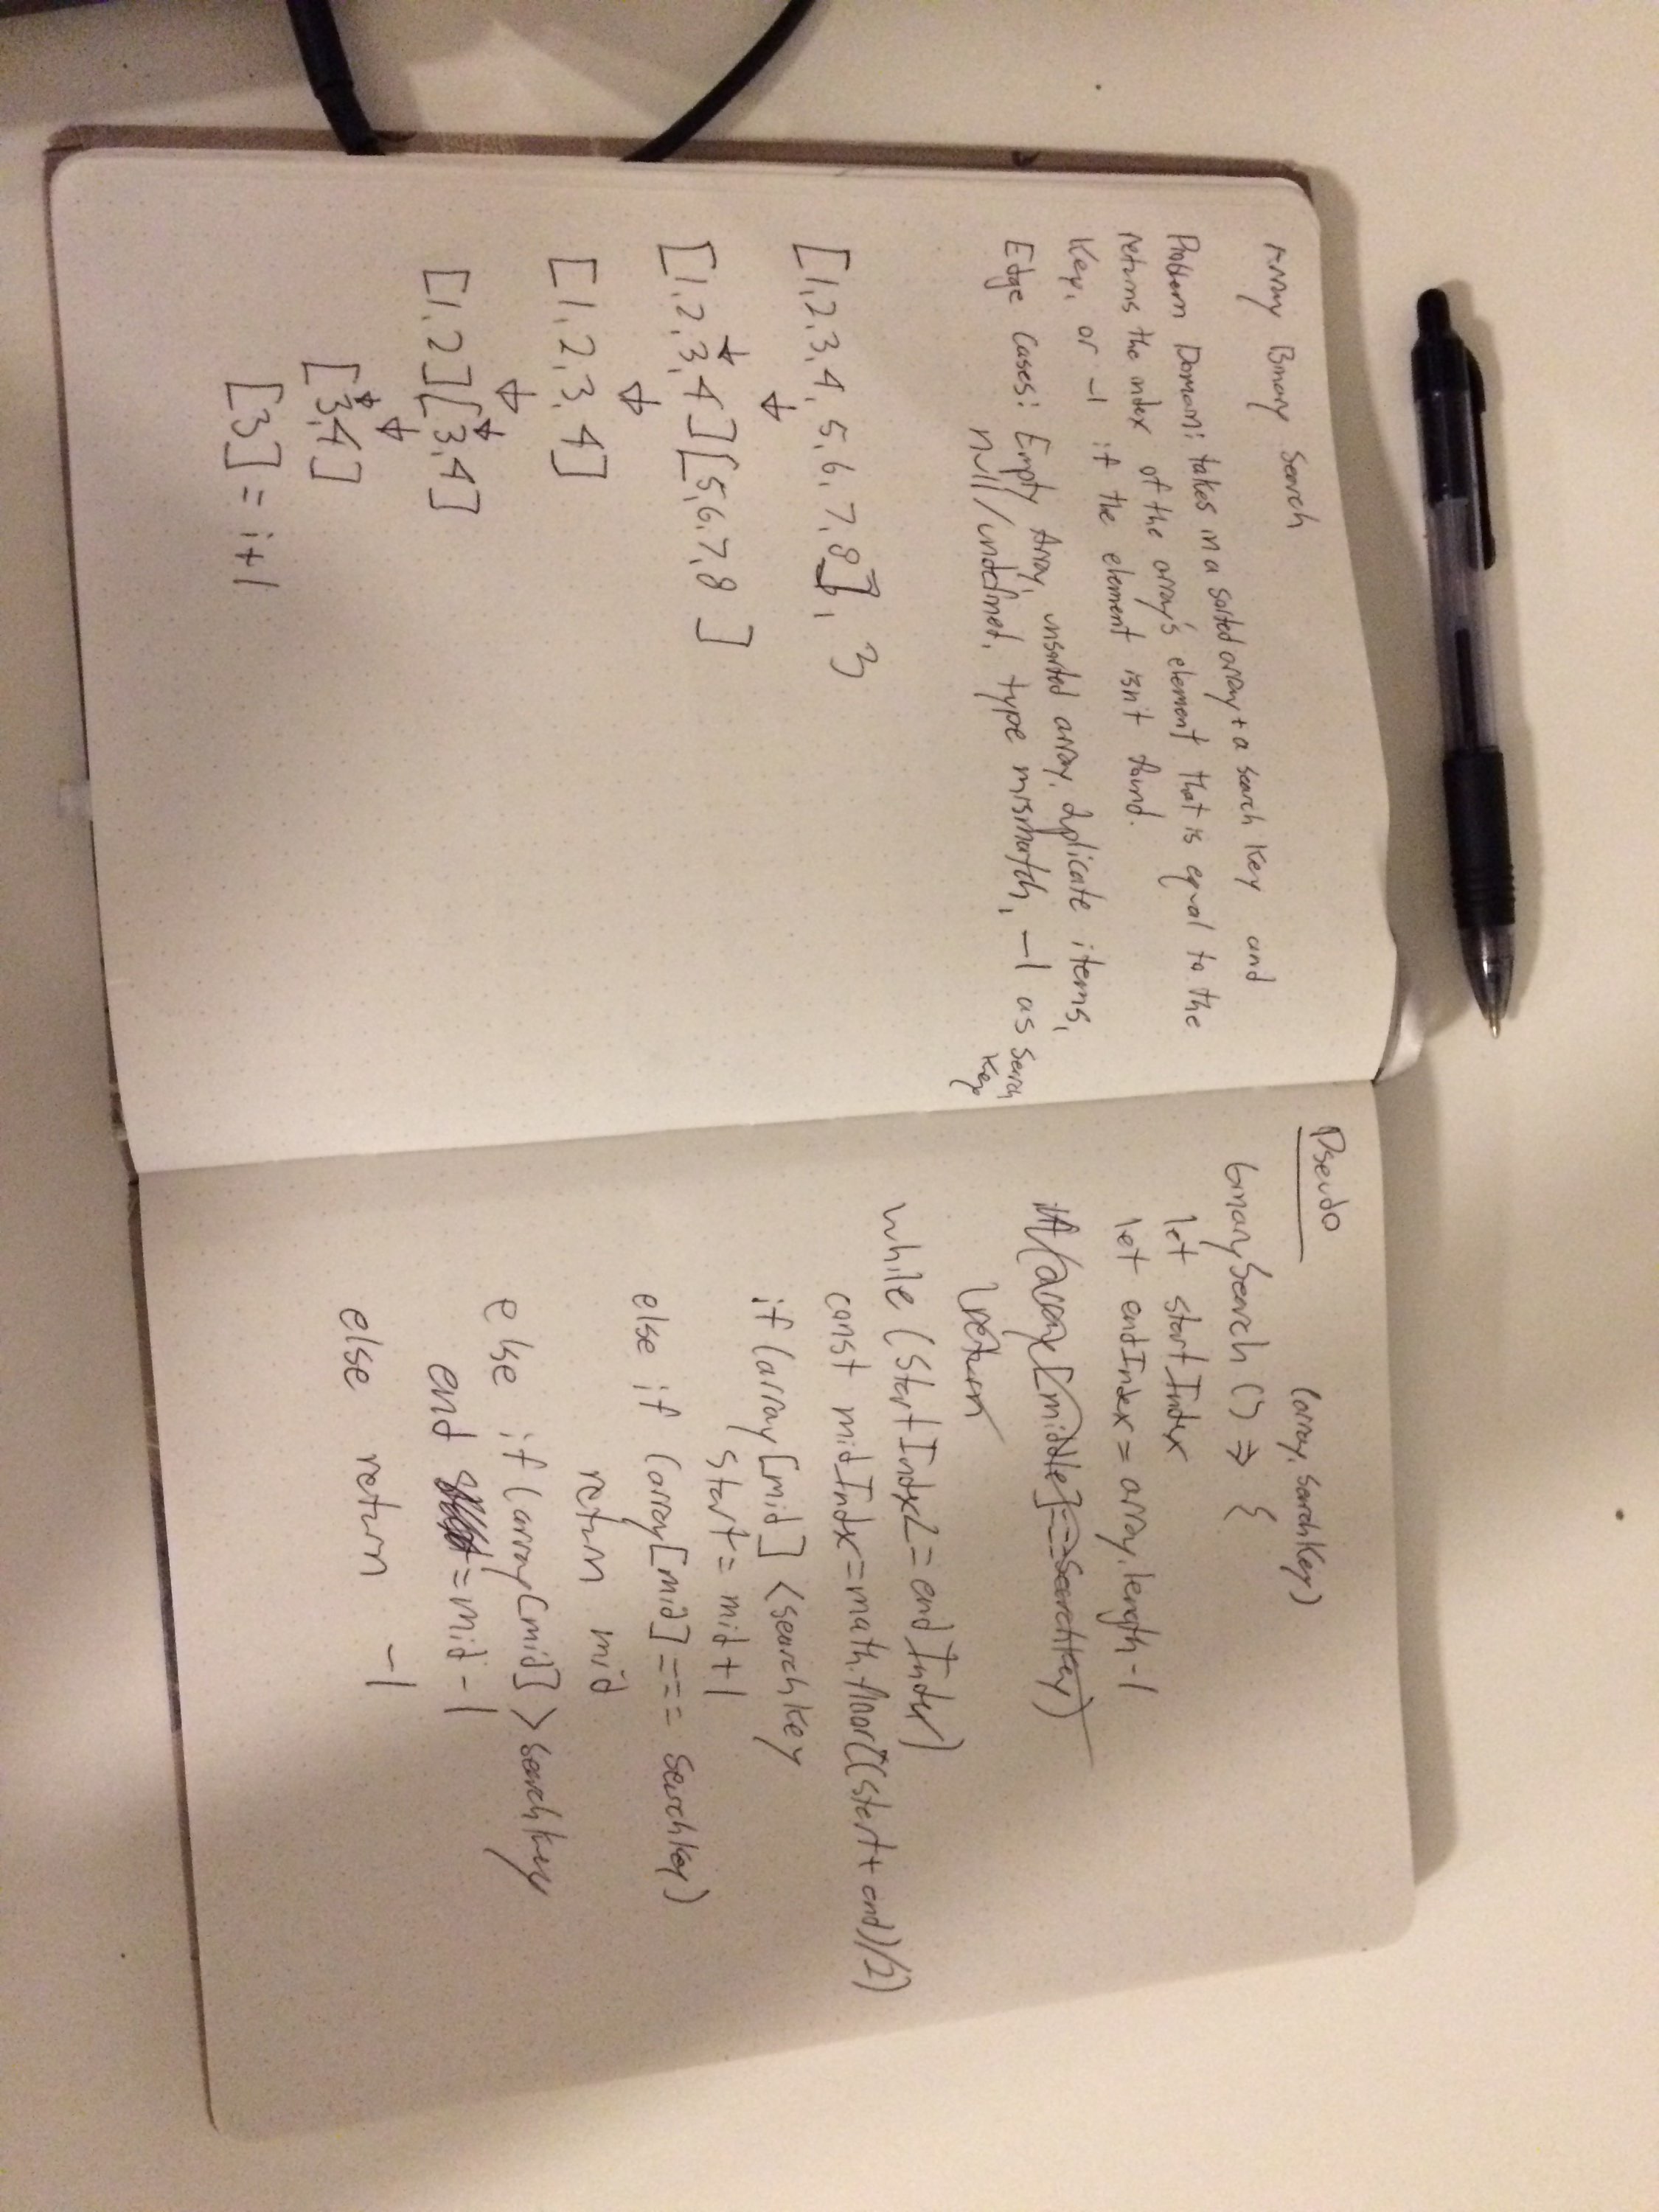 Array Binary Search
Problem Domain: takes in a sorted array + a search key and
returns the index of the array's element that is equal to the
key, or -1 if the element isn't found.
Edge Cases: Empty Array, unsorted array, duplicate items,
null/undefined, type mismatch, -1 as search
key
[1,2,3,4,5,6,7,8], 3
[1,2,3,4][5,6,7,8]
[1,2,3,4]
[1,2][3,4]
[3,4]
[3] = i+1
Pseudo
(array, searchKey)
binarySearch () => {
let startIndex
let endIndex = array.length-1
if(array[middle]==searchKey)
return
while (startIndex<=endIndex)
const midIndx=math.floor((start+end)/2)
if (array[mid] < searchkey
start = mid+1
else if (array[mid] === searchKey)
return mid
else if (array[mid] > searchkey
end = mid-1
else return -1